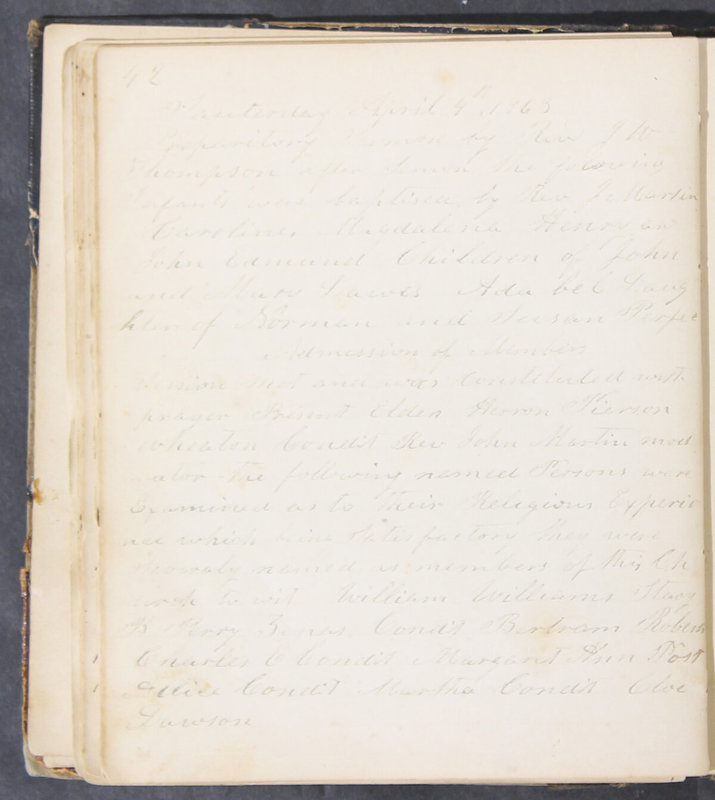 42
April 4th, 1863
Sermon by Rev J W
Thompson after sermon the folowing
Infants were baptised by Rev J Martin
Caroline Magdalena Henry an
John Edmund Children of John
and Mary Lawes Ada bel Daug
hter of Norman and Susan
Admission of Members
Session met and was Constituted with
prayer Present Elder Herron Pierson
Wheaton Condit Rev John Martin mod
rator the following named Persons were
Examined as to their Religious Experie
nce which being Satisfactory they were
as members of this Ch
urch To wit William Williams Stacy
B Perry Zenas Condit Bertram Roberts
Charles C Condit Margaret Ann Post
Alice Condit Martha Condit Cloe
Lawson